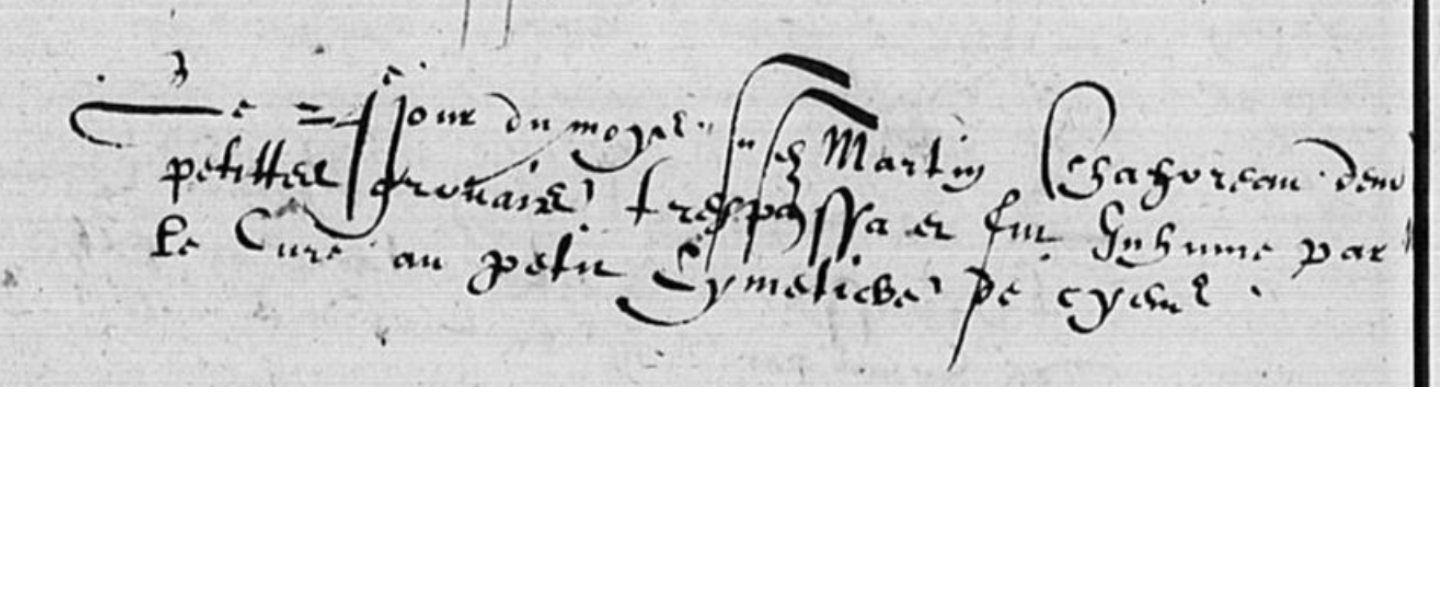 Le jour du moys Martin Chahoreau dem
petittes trespassa et fut Inhume par
le Cure au petit Cymetiere de ceyens